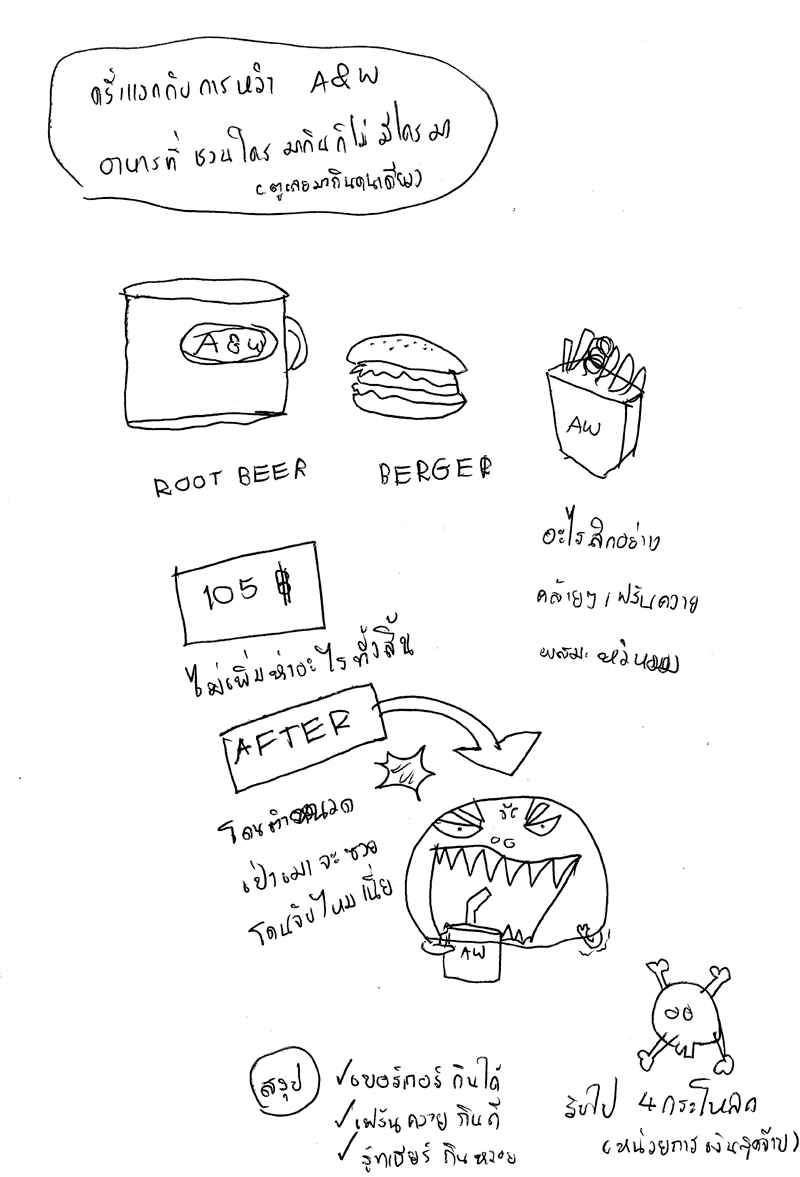 ครั้งแรกกับการหม่ำ A&W
อาหารที่ ชวนใคร มากินก็ไม่ มีใคร มา
(ตูเลยมากินคนเดียว)
A & W
AW
ROOT BEER
BERGER
อะไรสักอย่าง
คล้ายๆ เฟร้นควาย
ผสมะ
105 ฿
ไม่เพิ่มห่าอะไร ทั้งสิ้น
AFTER
โดนตำหนวด
เป่าเมา จะ ซวย
โดนจับไหม เนี่ย
AW
สรุป
เบอร์เกอร์ กินได้
เฟร้น ควาย กินดี
รู้ทเบียร์ กิน หวอย
รับไป 4 กระโหลก
(หน่วยการ เงินสุดจ๊าบ)